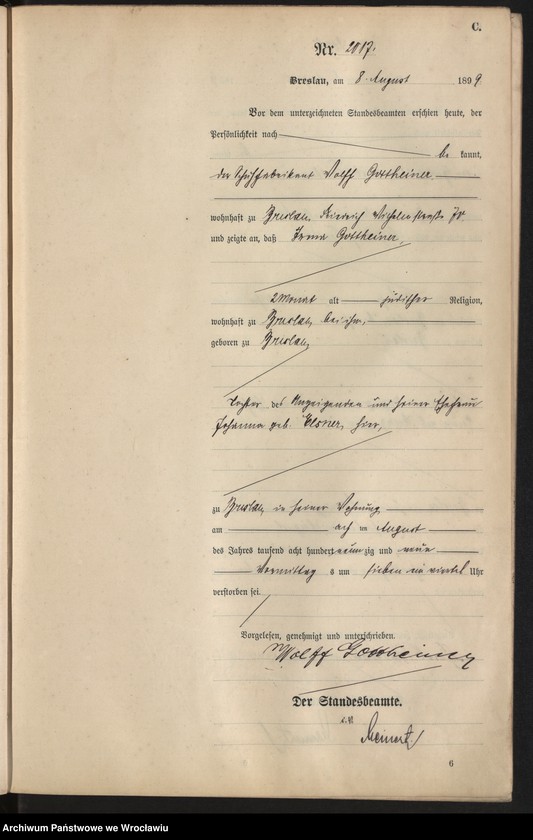 C.
Nr. 2017.
Breslau, am 8. August 1899
Vor dem unterzeichneten Standesbeamten erschien heute, der
Persönlichkeit nach
be kannt,
der Schuhfabrikant Wolff Gottheiner
wohnhaft zu Breslau, Friedrich Wilhelmstraße
und zeigte an, daß Irma Gottheiner,
2 Monat alt jüdischer Religion,
wohnhaft zu Breslau, bei ihm,
geboren zu Breslau,
Tochter des Anzeigenden und seiner Ehefrau
Johanna geb. Elsner, hier,
zu Breslau, in seiner Wohnung
am acht ten August
des Jahres tausend acht hundert neunzig und neun
Vormittag s um sieben ein viertel Uhr
verstorben sei.
Vorgelesen, genehmigt und unterschrieben.
Wolff Gottheiner
Der Standesbeamte.
i.V.
6
Archiwum Państwowe we Wrocławiu